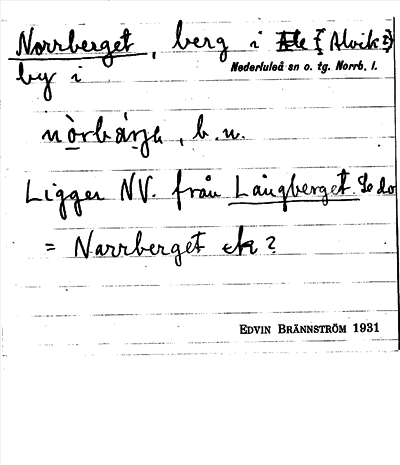 Norrberget, berg i (Alvik s)
by i Nederluleå sn o. tg. Norrb. l.
nòrbárje, b. u.
Ligger NV. från Långberget. Se do
= Narrberget ek?
EDVIN BRÄNNSTRÖM 1931